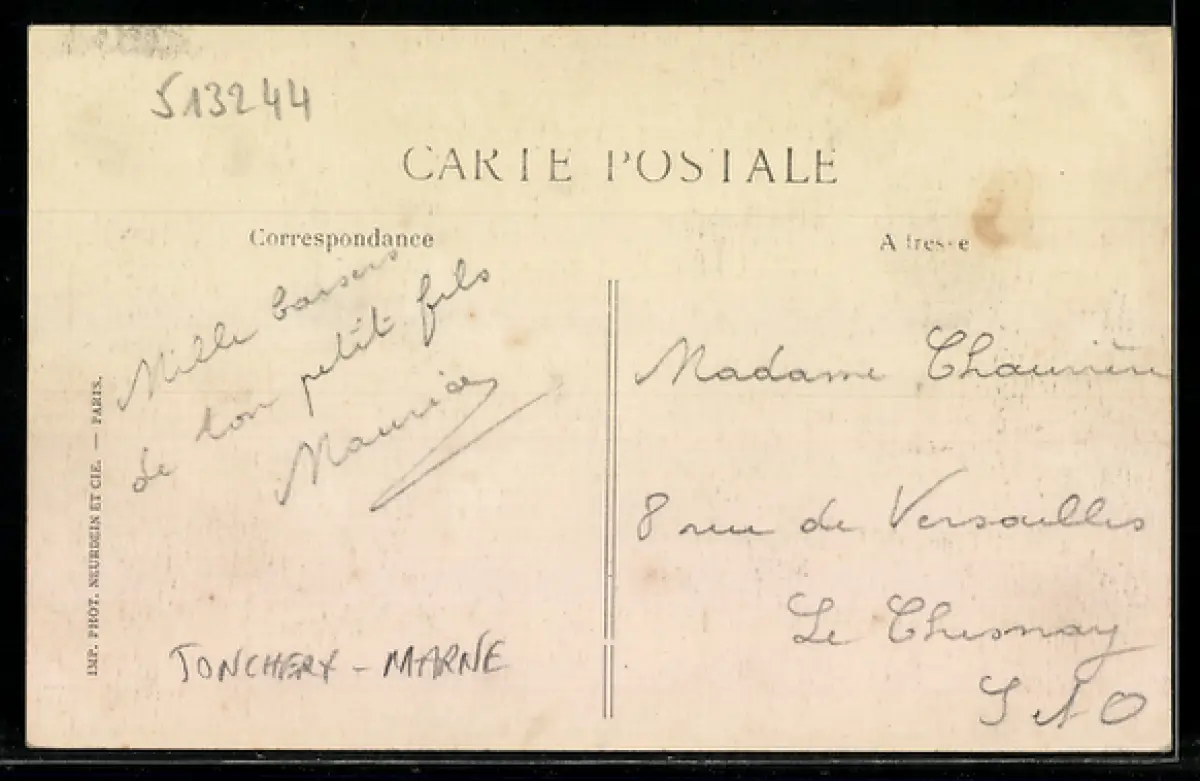 513244
CARTE POSTALE
Correspondance
Adresse
Mille baisers
de ton petit fils
Maurice
IMP. PHOT. NEURDEIN ET CIE. — PARIS.
JONCHERY - MARNE
Madame
8 rue de Versailles
Le Chesnay
S et O